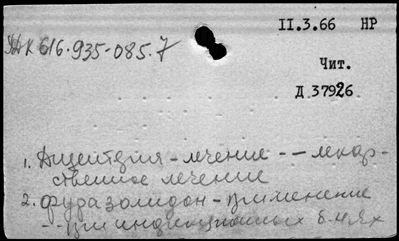 II.3.66 НР
УДК 616.935-085.7
Чит.
Д 37926
1. Дизентерия - лечение -- лекар-
ственное лечение
2. Фуразолидон - применение
-- при инфекционных б-нях